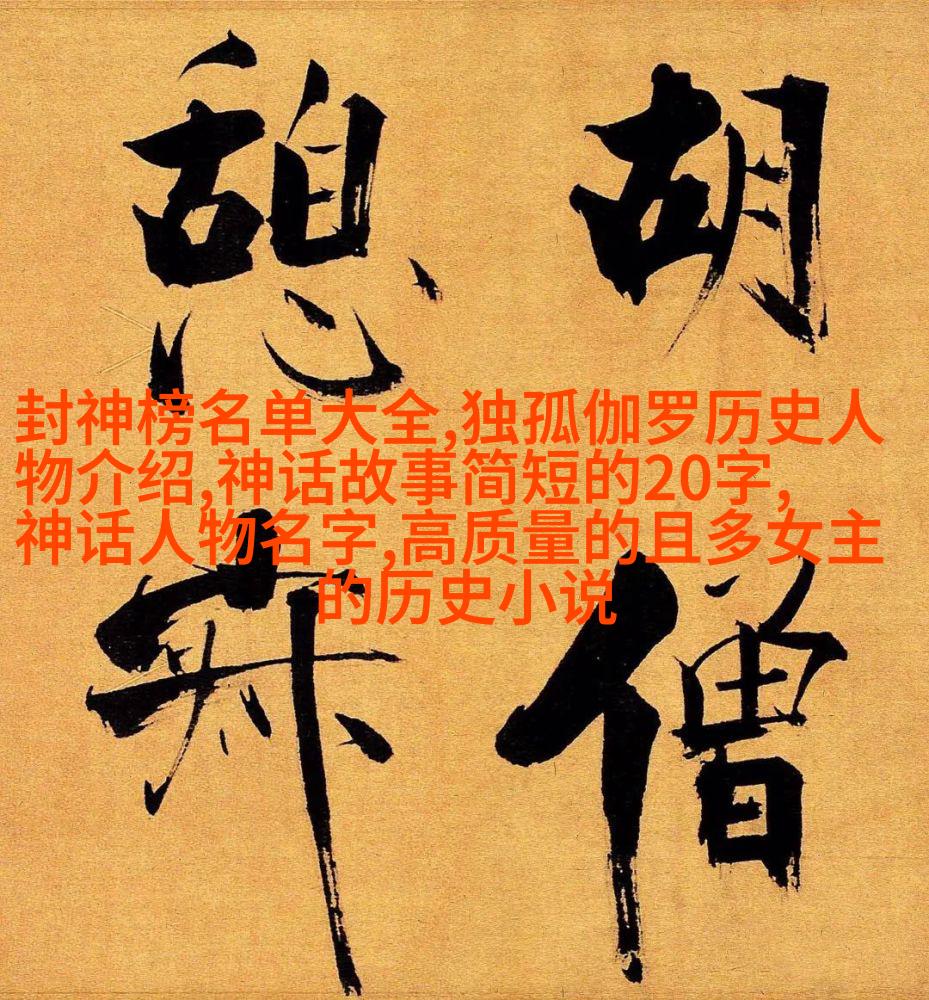 胡僧
憩寂
封神榜名单大全,独孤伽罗历史人
物介绍,神话故事简短的20字,
神话人物名字,高质量的且多女主
的历史小说